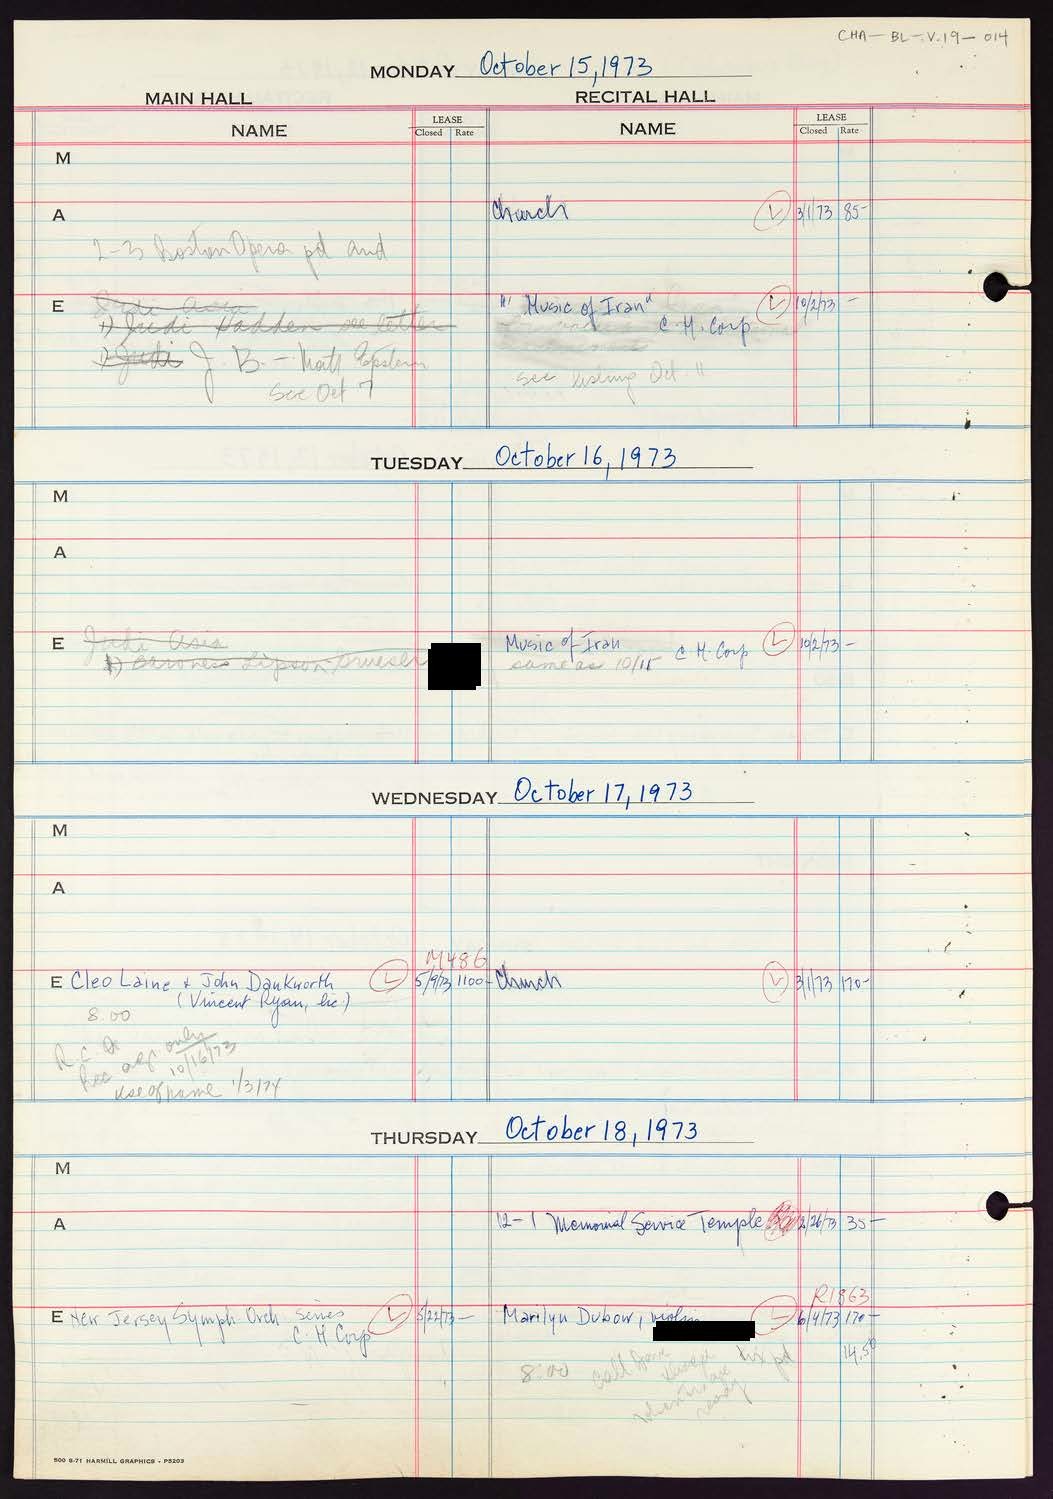 CHA-BL-V.19-014
MONDAY October 15, 1973
MAIN HALL
RECITAL HALL
NAME
LEASE
Closed Rate
NAME
LEASE
Closed Rate
M
A
Church L 3/1/73 85-
2-3 Boston Opera pd and
E
Judi Asia
1) Judi Hadden see letter
1) Judi J. B. - Matt Epstein
See Oct 7
"Music of Iran" L 10/2/73 -
C. H. Corp
see listing Oct. 11
TUESDAY October 16, 1973
M
A
E
Judi Asia
1) Baroness Lipson
Music of Iran L 10/2/73 -
same as 10/15 C H Corp
WEDNESDAY October 17, 1973
M
A
M486
E Cleo Laine & John Dankworth L 5/9/73 1100-
(Vincent Ryan, Inc.)
8:00
R.C.A.
Rec only
10/16/73
Use of name 1/3/74
Church L 3/1/73 170-
THURSDAY October 18, 1973
M
A
12-1 Memorial Service Temple 2/26/73 35-
E New Jersey Symph. Orch series L 5/22/73 -
C. H Corp
R1863
Marilyn Dubow, violin L 6/4/73 170-
14.50
8:00 call
pd
ready
500 6-71 HARMILL GRAPHICS - P5203